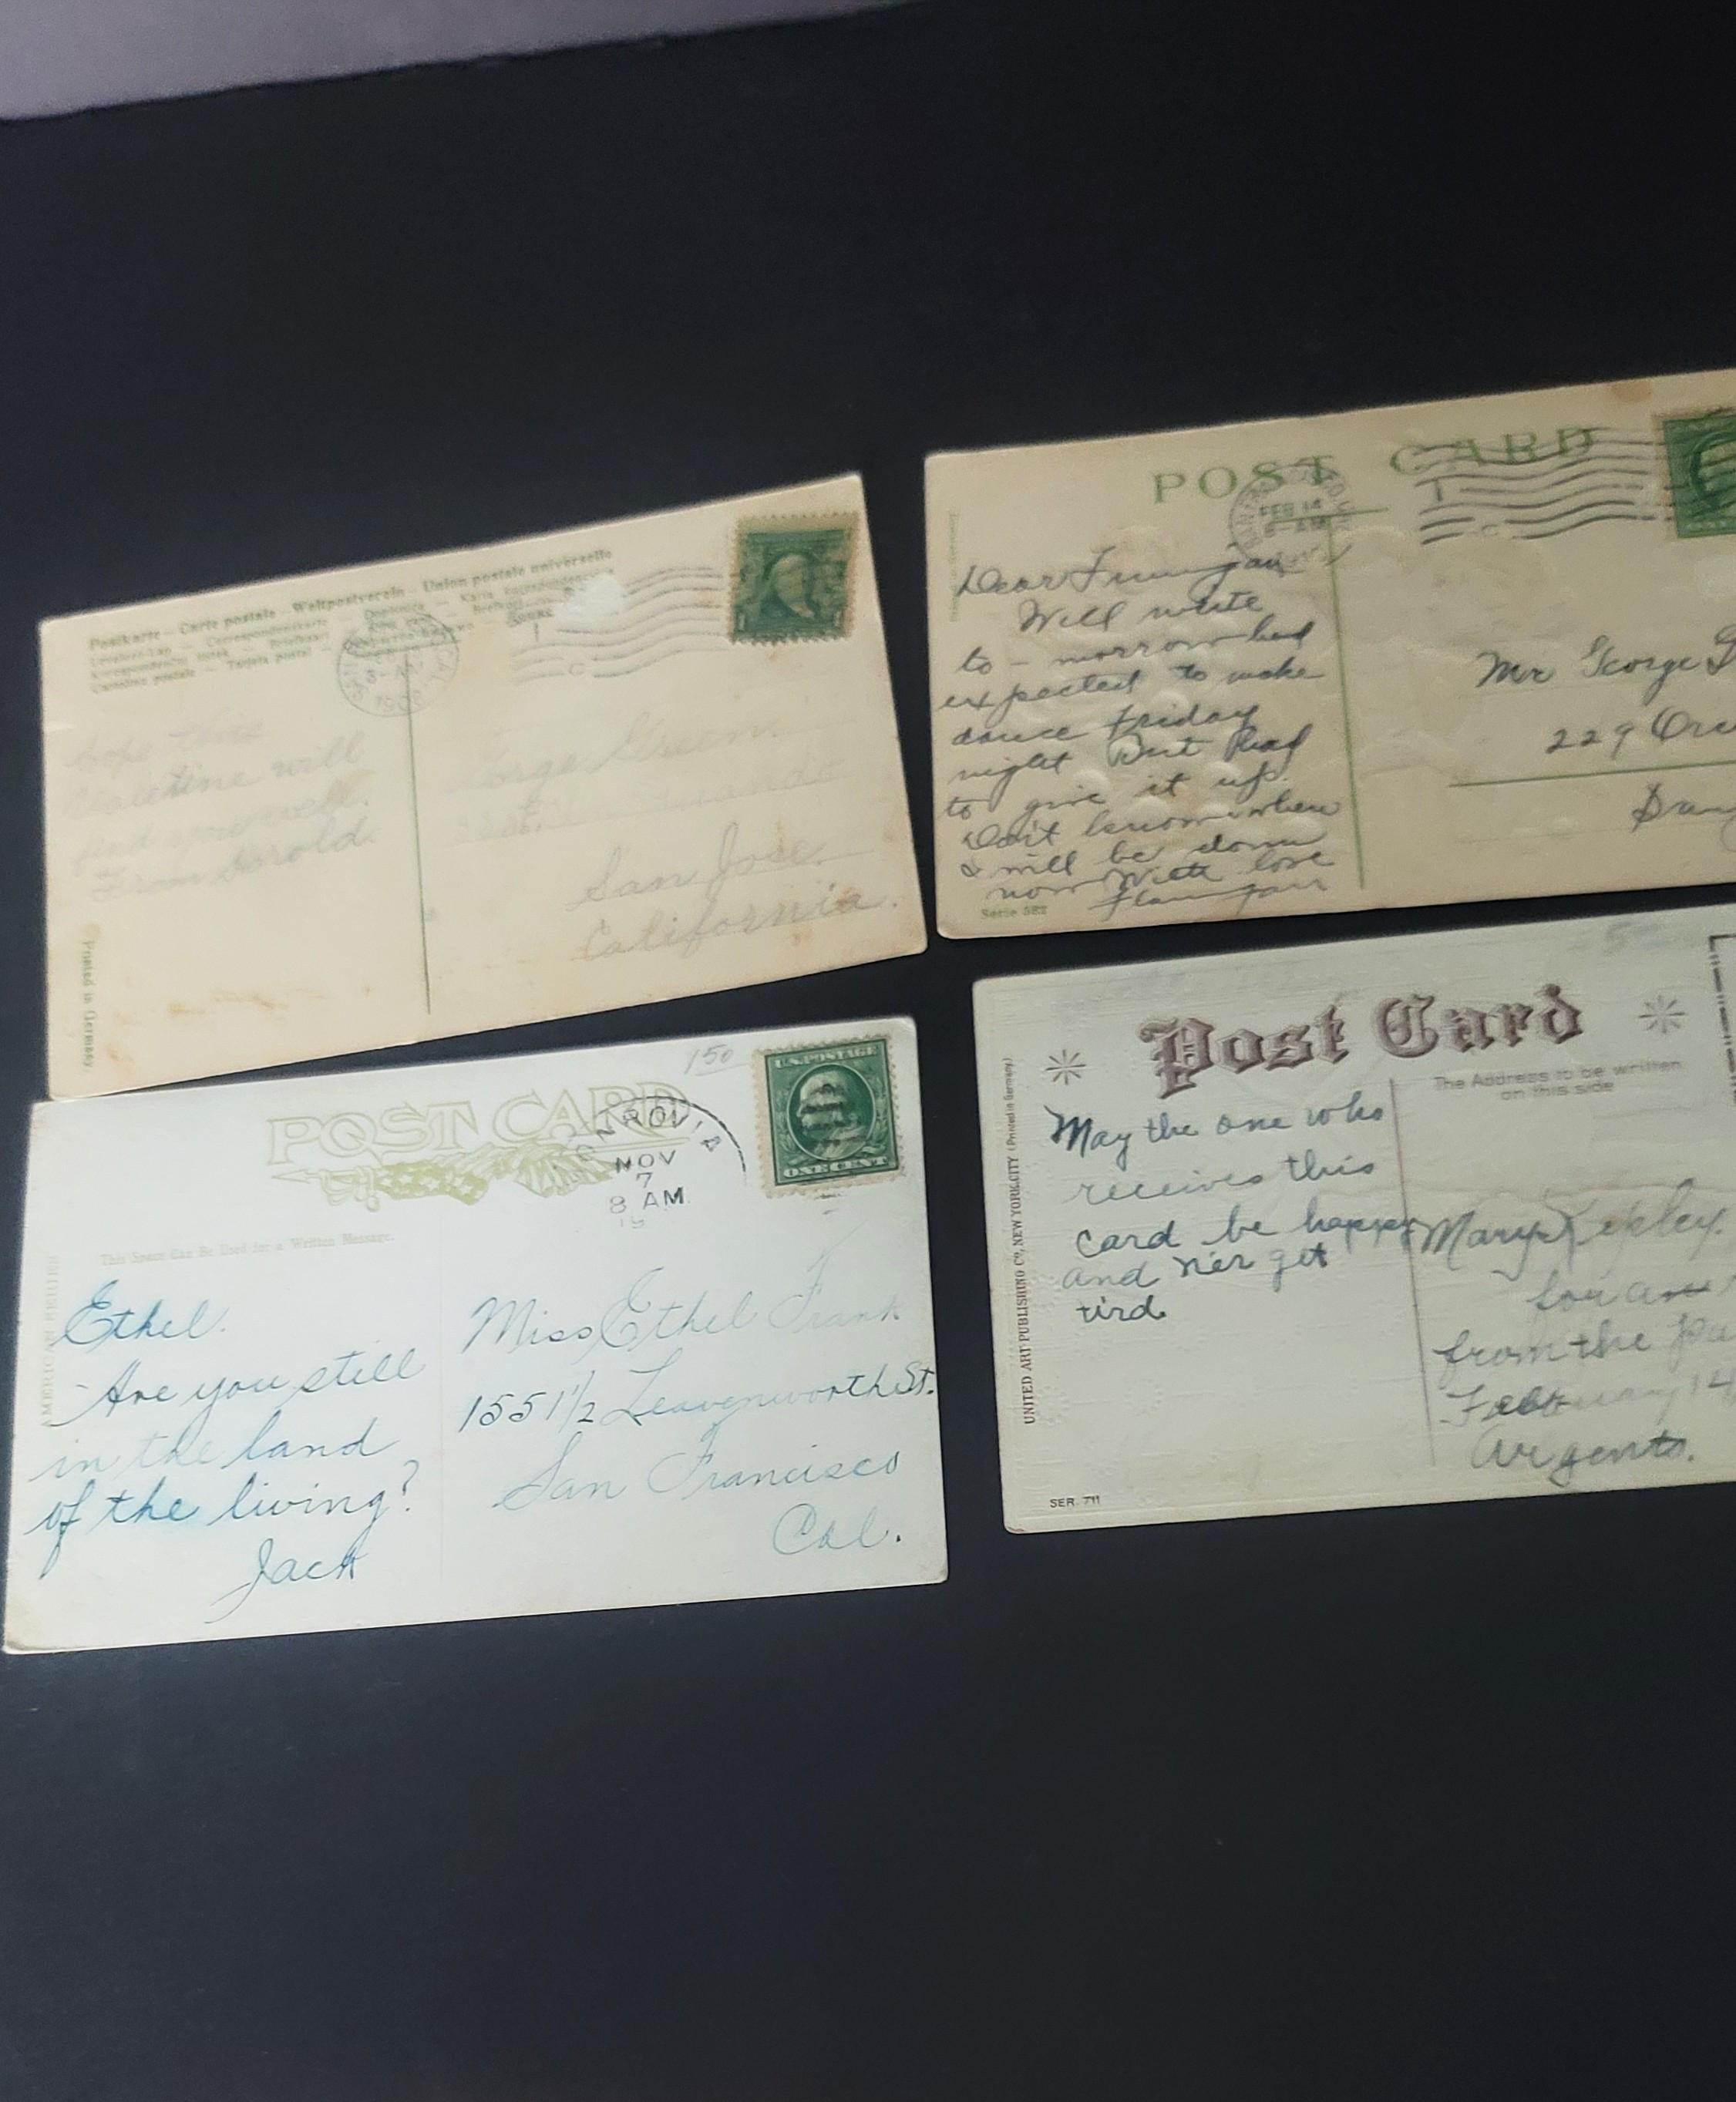 Postkarte - Carte postale - Weltpostverein - Union postale universelle
1
C
3-A
190
hope this
Valetine will
find you well.
From Harold.
George Green.
San Jose.
California.
Printed in Germany
POST CARD
FEB 14
AM
1
C
Dear
Will write
to-morrow had
expected to make
dance Friday
night But had
to give it up.
Don't know when
I will be down
now With love
Serie 582
Mr George G
229
POST CARD
150
U.S. POSTAGE
ONE CENT
MONROVIA
NOV
7
8 AM
19
This Space Can Be Used for a Written Message.
Ethel.
Are you still
in the land
of the living?
Jack
Miss Ethel Frank
1551 1/2 Leavenworth St.
San Francisco
Cal.
Post Card
The Address to be written
on this side
UNITED ART PUBLISHING Co, NEW YORK CITY (Printed in Germany)
May the one who
receives this
card be happy
and ner get
tird
Mary
for
from the
February 14
Argents.
SER. 711